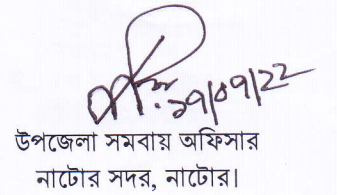 ১৭/০৭/২২
উপজেলা সমবায় অফিসার
নাটোর সদর, নাটোর।